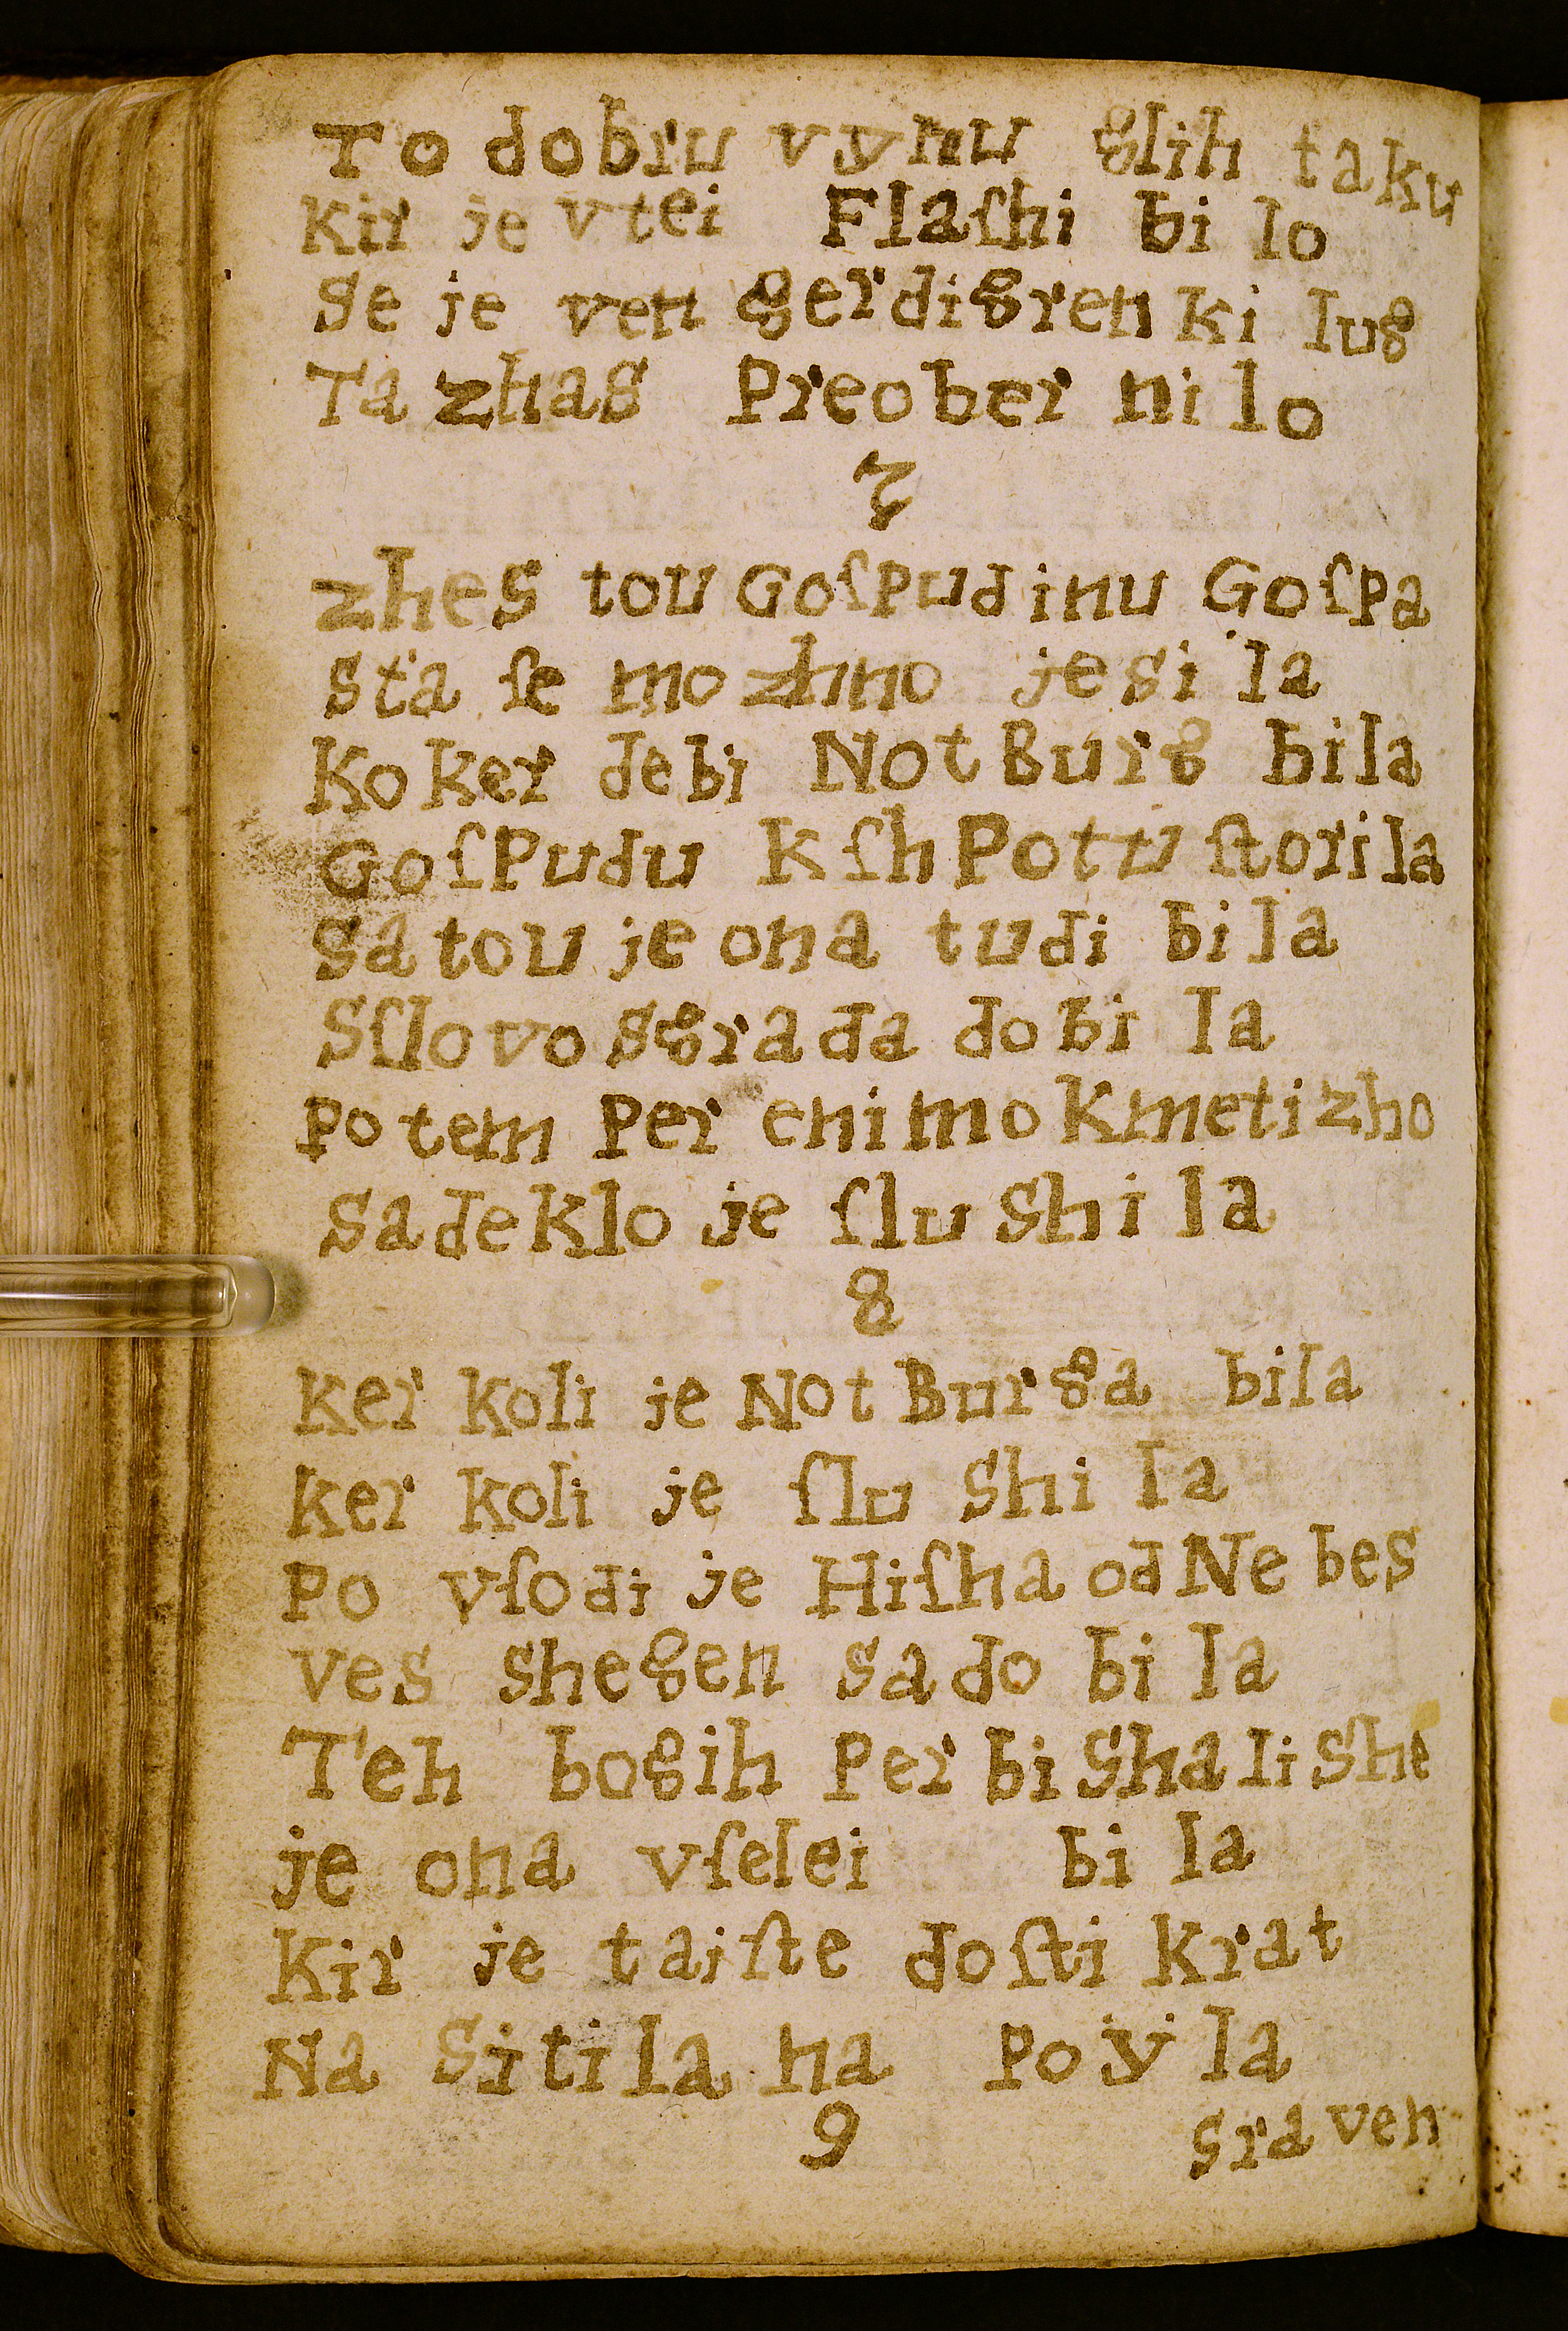 To dobru vynu glih taku
Kir je vtei Flaſhi bilo
Se je ven gerdigrenki lug
Ta zhas Preobernilo
7
zhes tou Goſpudinu Goſpa
Sta ſe mozhno jesila
Koker debi NotBurg bila
Goſpudu kſhPottu ſtorila
Satou je ona tudi bila
Sſlovo Sgrada dobila
Potem Per enimo kmetizho
Sadeklo je ſluShila
8
Ker koli je NotBurga bila
Ker koli je ſluShila
Po vſodi je Hiſha od Nebes
ves shegen sadobila
Teh bogih PerbiShaliShe
je ona vſelei bila
Kir je taiſte doſtikrat
Na Sitila na Poÿla
9 sraven